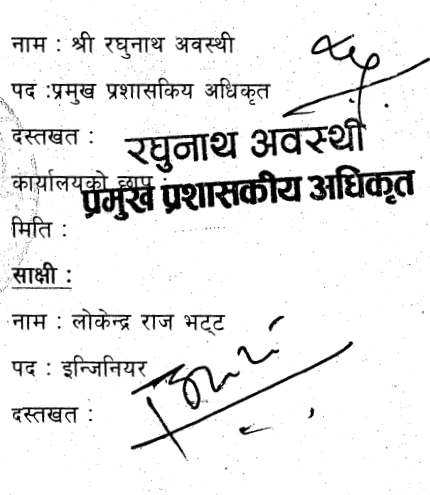 नाम : श्री रघुनाथ अवस्थी
पद :प्रमुख प्रशासकिय अधिकृत
दस्तखत :
रघुनाथ अवस्थी
कार्यालयको छाप :
प्रमुख प्रशासकीय अधिकृत
मिति :
साक्षी :
नाम : लोकेन्द्र राज भट्ट
पद : इन्जिनियर
दस्तखत :